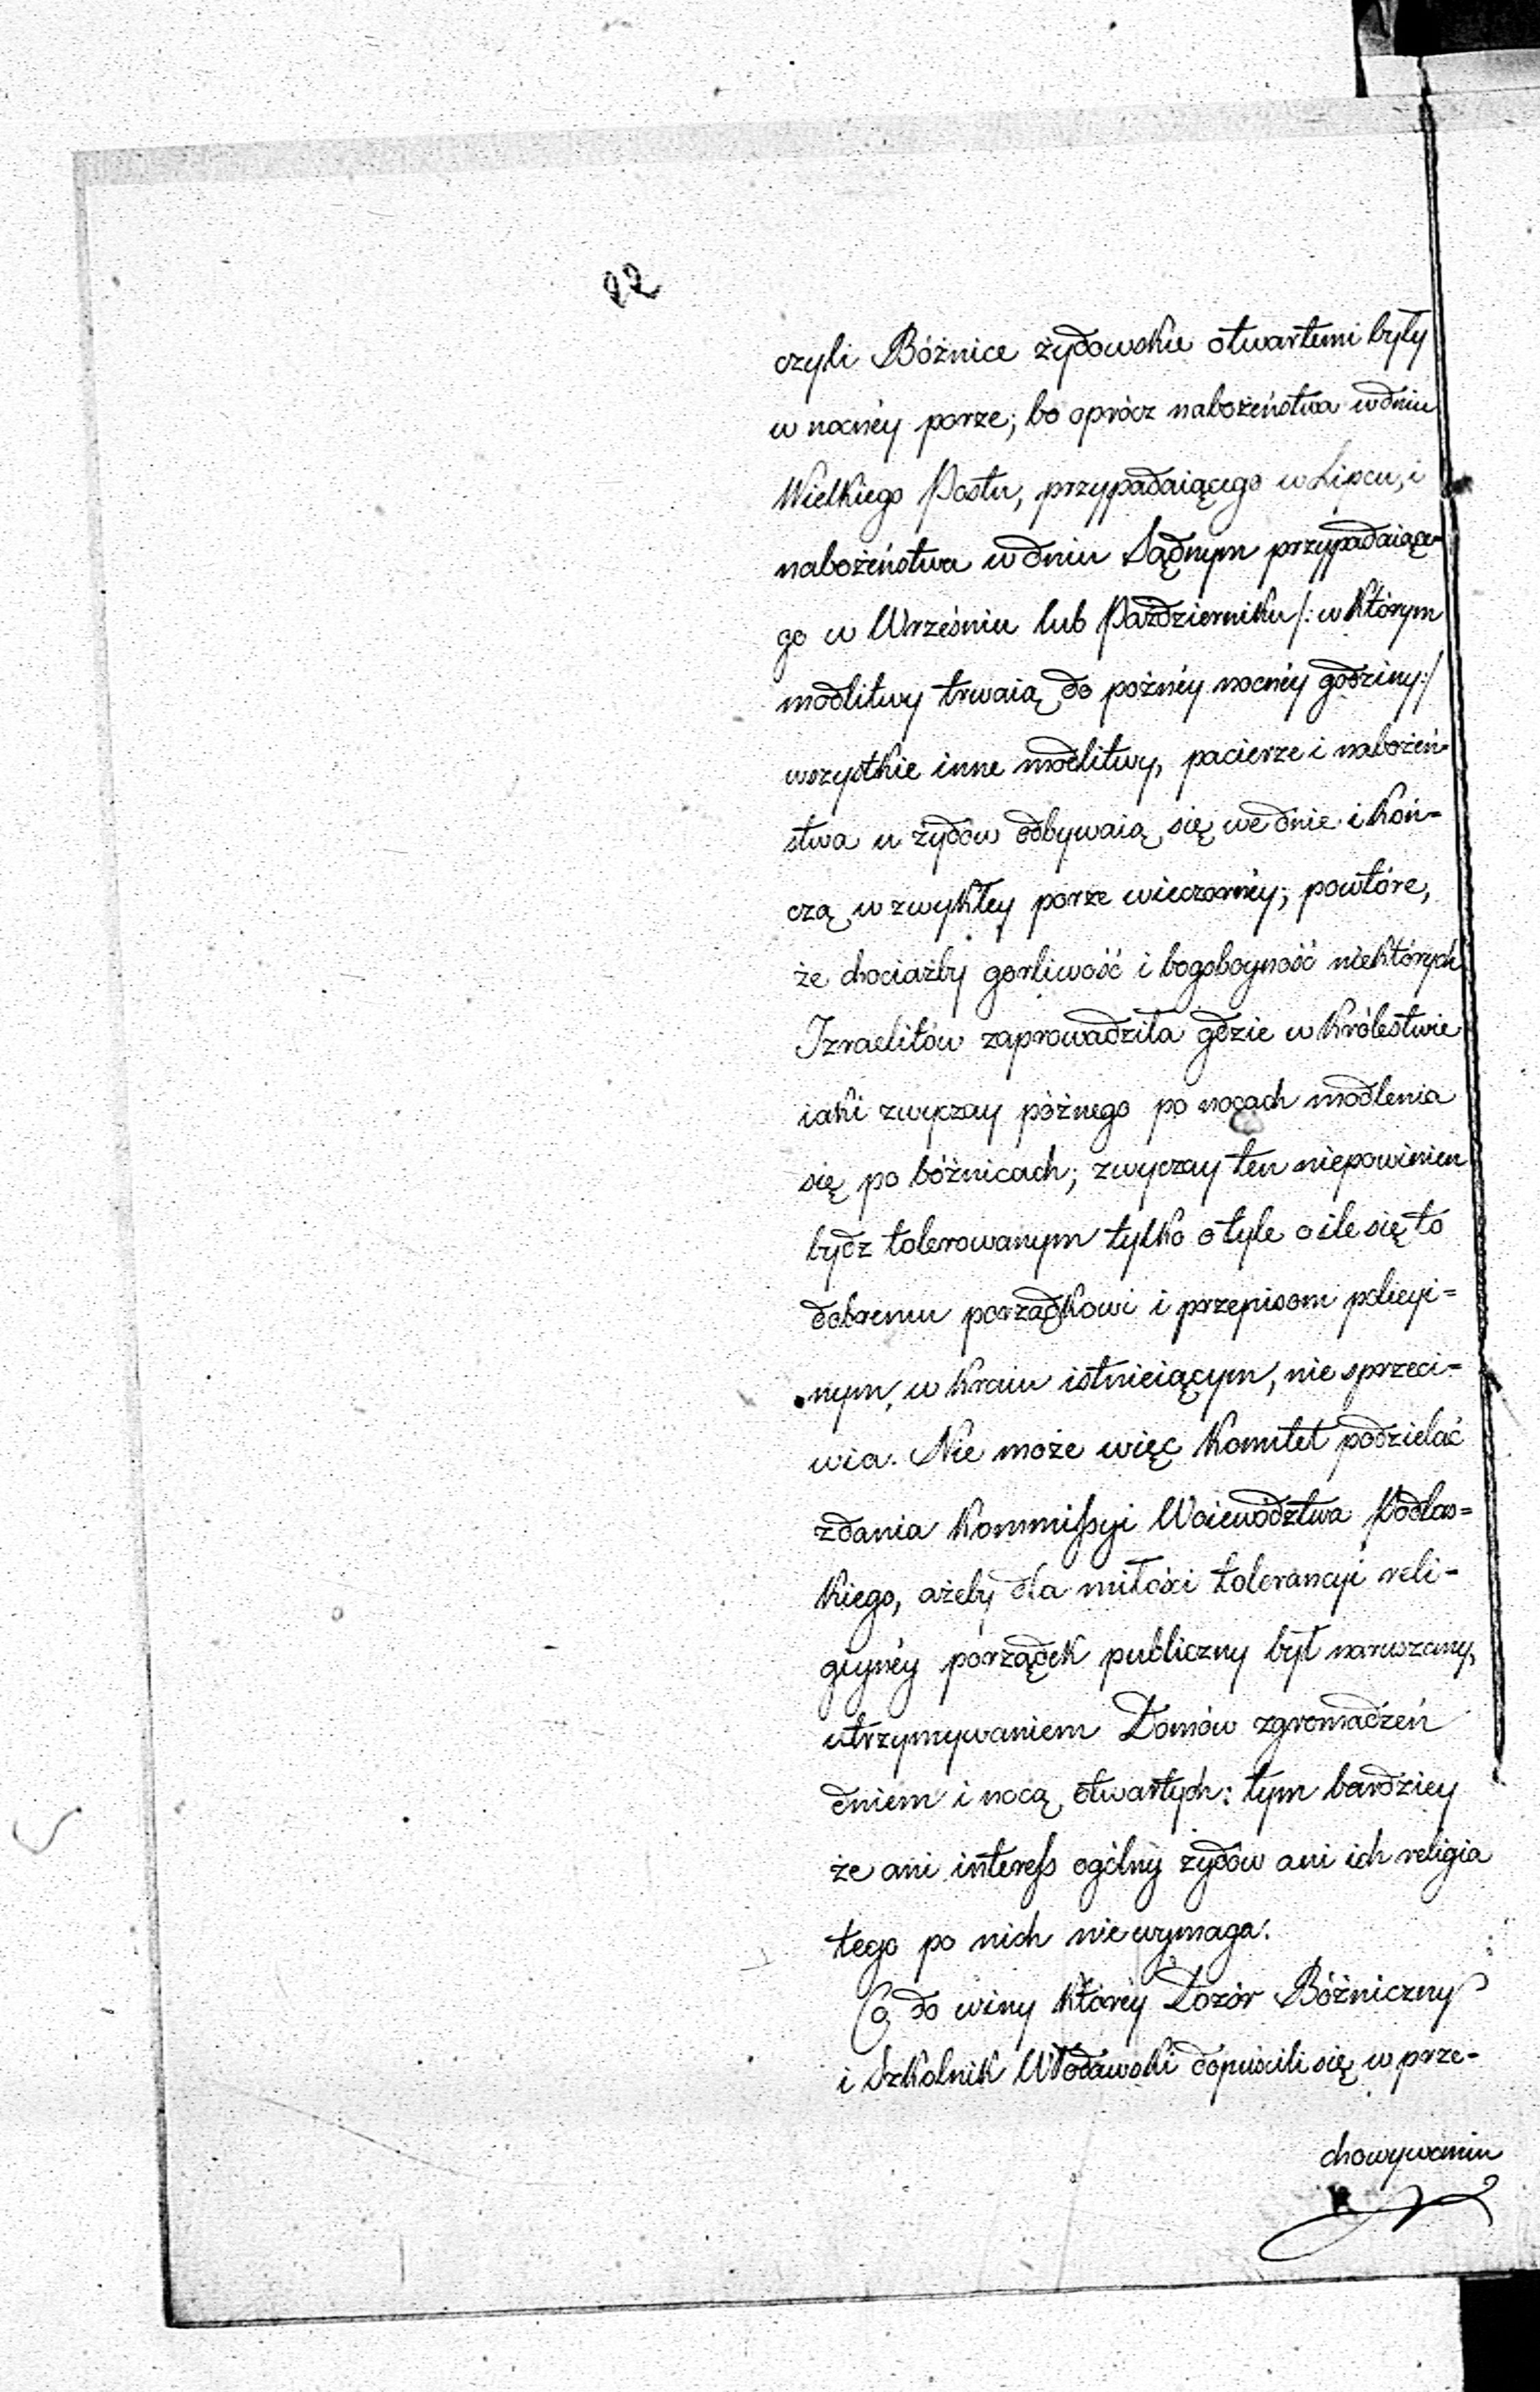 22
czyli Bóżnice żydowskie otwartemi były
w nocnéy porze; bo oprócz nabożeństwa w dniu
Wielkiego Postu, przypadaiącego w Lipcu, i
nabożeństwa w dniu Sądnym przypadaiące-
go w Wrześniu lub Październiku /: w którym
modlitwy trwaią do poźnéy nocnéy godziny :/
wszystkie inne modlitwy, pacierze i nabożeń-
stwa u żydów odbywaią się we dnie i koń=
czą w zwykłey porze wieczornéy; powtóre,
że chociażby gorliwość i bogoboyność niektórych
Izraelitów zaprowadziła gdzie w Królestwie
iaki zwyczay póżnego po nocach modlenia
się po bóżnicach; zwyczay ten niepowinien
bydz tolerowanym tylko o tyle o ile się to
dobremu porządkowi i przepisom policyi=
nym, w kraiu istnieiącym, nie sprzeci=
wia. Nie może więc Komitet podzielać
zdania Kommissyi Woiewództwa Podlas=
kiego, ażeby dla miłości tolerancyi reli-
giynéy porządek publiczny był naruszany,
utrzymywaniem Domów zgromadzeń
dniem i nocą otwartych: tym bardziey
że ani interess ogólny żydów ani ich religia
tego po nich nie wymaga.
Co do winy któréy Dozór Bóżniczny
i Szkolnik Włodawski dopuścili się w prze-
chowywaniu